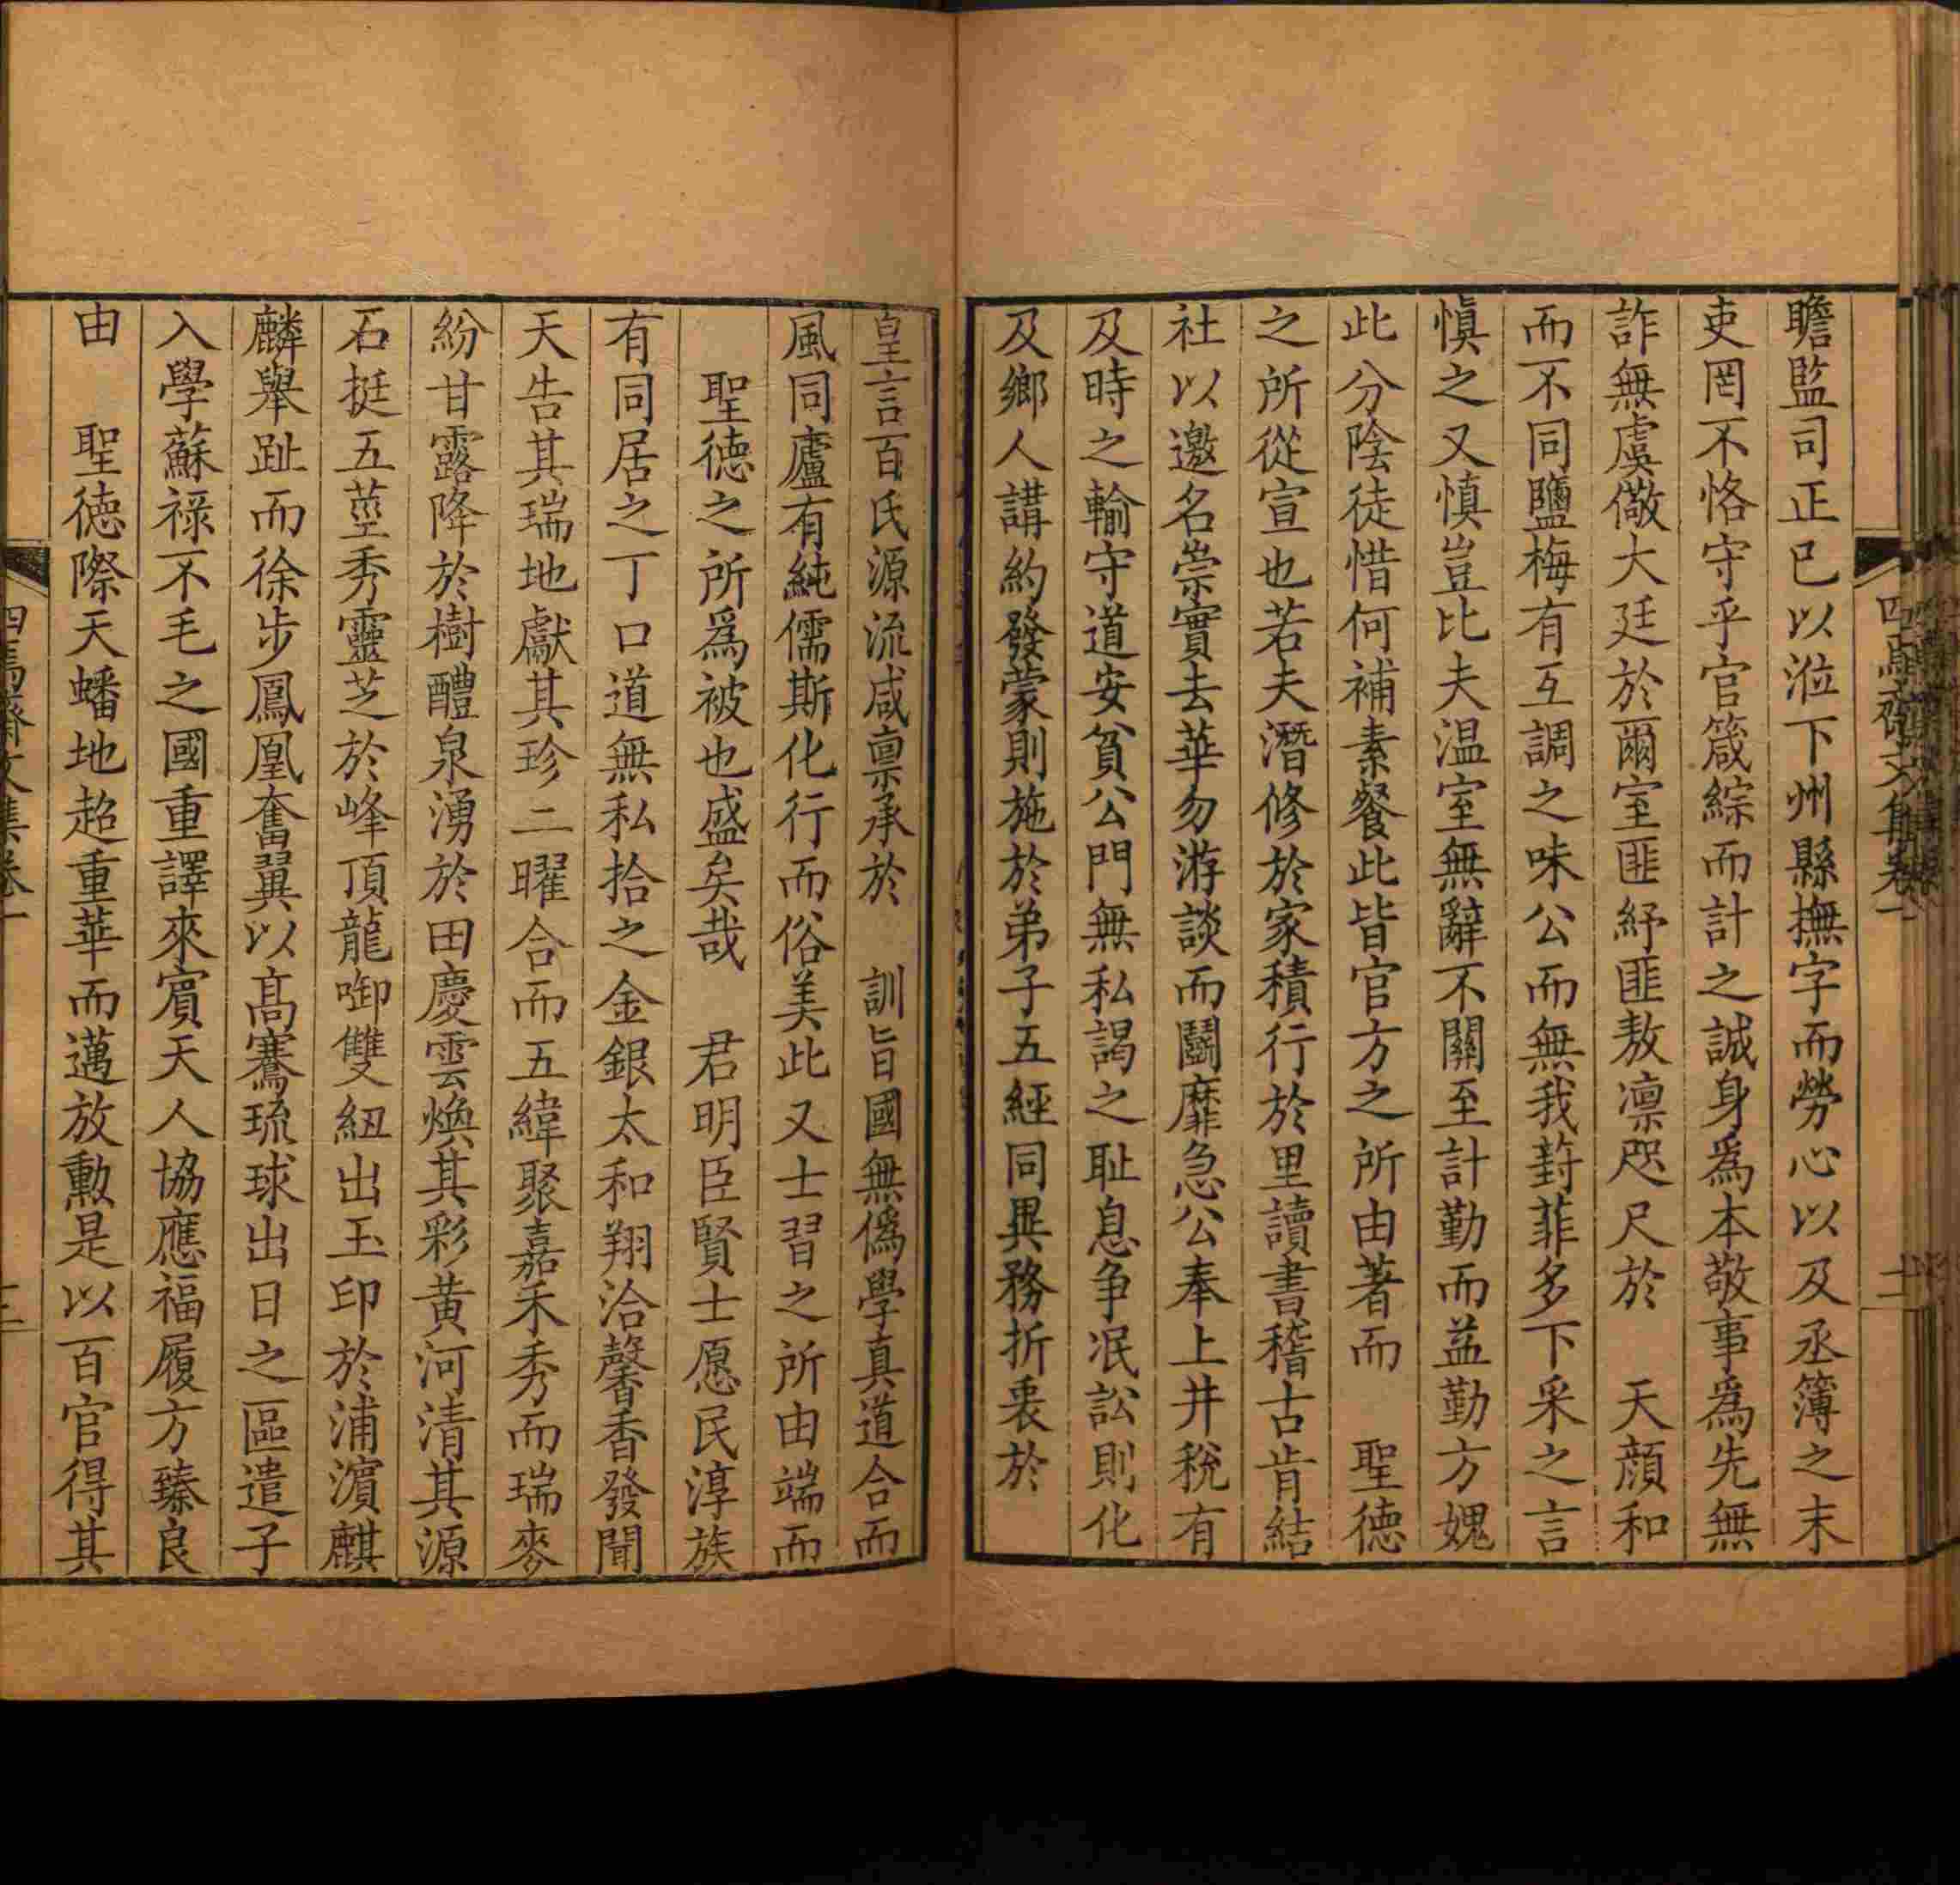 瞻監司正已以涖下州縣撫字而勞心以及丞簿之末
吏罔不恪守乎官箴綜而計之誠身爲本敬事爲先無
詐無虞儆大廷於爾室匪紓匪敖凛咫尺於　天顔和
而不同鹽梅有互調之味公而無我葑菲多下采之言
慎之又慎豈比夫温室無辭不關至計勤而益勤方媿
此分陰徒惜何補素餐此皆官方之所由著而　聖德
之所從宣也若夫潛修於家積行於里讀書稽古肯結
社以邀名崇實去華勿游談而鬭靡急公奉上井税有
及時之輸守道安貧公門無私謁之耻息争泯訟則化
及鄉人講約發蒙則施於弟子五經同異務折衷於
皇言百氏源流咸禀承於　訓旨國無僞學真道合而
風同廬有純儒斯化行而俗美此又士習之所由端而
聖德之所爲被也盛矣哉　君明臣賢士愿民淳族
有同居之丁口道無私拾之金銀太和翔洽馨香發聞
天告其瑞地獻其珍二曜合而五緯聚嘉禾秀而瑞麥
紛甘露降於樹醴泉湧於田慶雲煥其彩黄河清其源
石挺五莖秀靈芝於峰頂龍啣雙紐出玉印於浦濵麒
麟舉趾而徐步鳳凰奮翼以高騫琉球出日之區遣子
入學蘇禄不毛之國重譯來賓天人協應福履方臻良
由　聖德際天蟠地超重華而邁放勳是以百官得其
四焉齋文集卷一